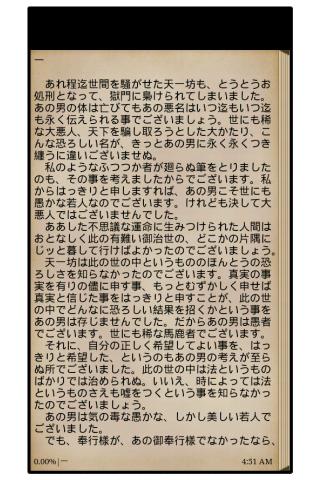 一
あれ程迄世間を騒がせた天一坊も、とうとうお
処刑となって、獄門に梟けられてしまいました。
あの男の体は亡びてもあの悪名はいつ迄もいつ迄
も永く伝えられる事でございましょう。世にも稀
な大悪人、天下を騙し取ろうとした大かたり、こ
んな恐ろしい名が、きっとあの男に永く永くつき
纏うに違いございませぬ。
私のようなふつつか者が廻らぬ筆をとりました
のも、その事を考えましたからでございます。私
からはっきりと申しますれば、あの男こそ世にも
愚かな若人なのでございます。けれども決して大
悪人ではございませんでした。
ああした不思議な運命に生みつけられた人間は
おとなしく此の有難い御治世の、どこかの片隅に
じッと暮して行けばよかったのでございましょう。
天一坊は此の世の中というもののほんとうの恐
ろしさを知らなかったのでございます。真実の事
実を有りの儘に申す事、もっとむずかしく申せば
真実と信じた事をはっきりと申すことが、此の世
の中でどんなに恐ろしい結果を招くかという事を
あの男は存じませんでした。だからあの男は愚者
でございます。世にも稀な馬鹿者でございます。
それに、自分の正しく希望してよい事を、はっ
きりと希望した、というのもあの男の考えが至ら
ぬ所でございました。此の世の中は法というもの
ばかりでは治められぬ。いいえ、時によっては法
というものさえも嘘をつくという事を知らなかっ
たのでございましょう。
あの男は気の毒な愚かな、しかし美しい若人で
ございました。
でも、奉行様が、あの御奉行様でなかったなら、
0.00%|一
4:51 AM